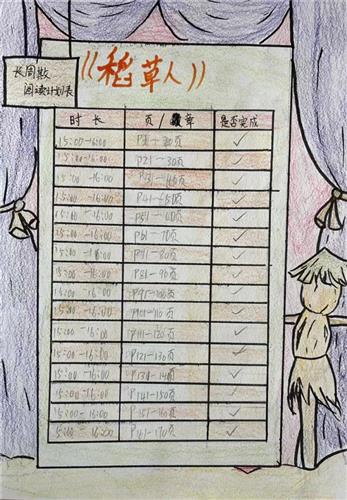 长周数
阅读计划表
《稻草人》
时 长 页/章 是否完成
15:00-16:00 ✓
15:00-16:00 P21-30页 ✓
15:00-16:00 P31-40页 ✓
15:00-16:00 P41-50页 ✓
15:00-16:00 P51-60页 ✓
15:00-16:00 P61-70页 ✓
15:00-16:00 P71-80页 ✓
15:00-16:00 P81-90页 ✓
15:00-16:00 P91-100页 ✓
15:00-16:00 P101-110页 ✓
15:00-16:00 P111-120页 ✓
15:00-16:00 P121-130页 ✓
15:00-16:00 P131-140页 ✓
15:00-16:00 P141-150页 ✓
15:00-16:00 P151-160页 ✓
15:00-16:00 P161-170页 ✓